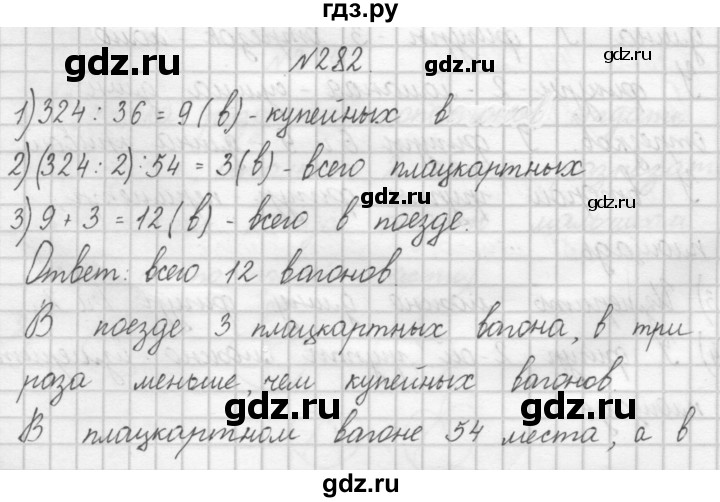 гдз.ру
№282.
1) 324 : 36 = 9 (в) - купейных в
2) (324 : 2) : 54 = 3 (в) - всего плацкартных
3) 9 + 3 = 12 (в) - всего в поезде.
Ответ: всего 12 вагонов.
В поезде 3 плацкартных вагона, в три
раза меньше, чем купейных вагонов
В плацкартном вагоне 54 места, а в
gdz.ru
gdz.ru
gdz.ru
gdz.ru
gdz.ru
gdz.ru
gdz.ru
gdz.ru